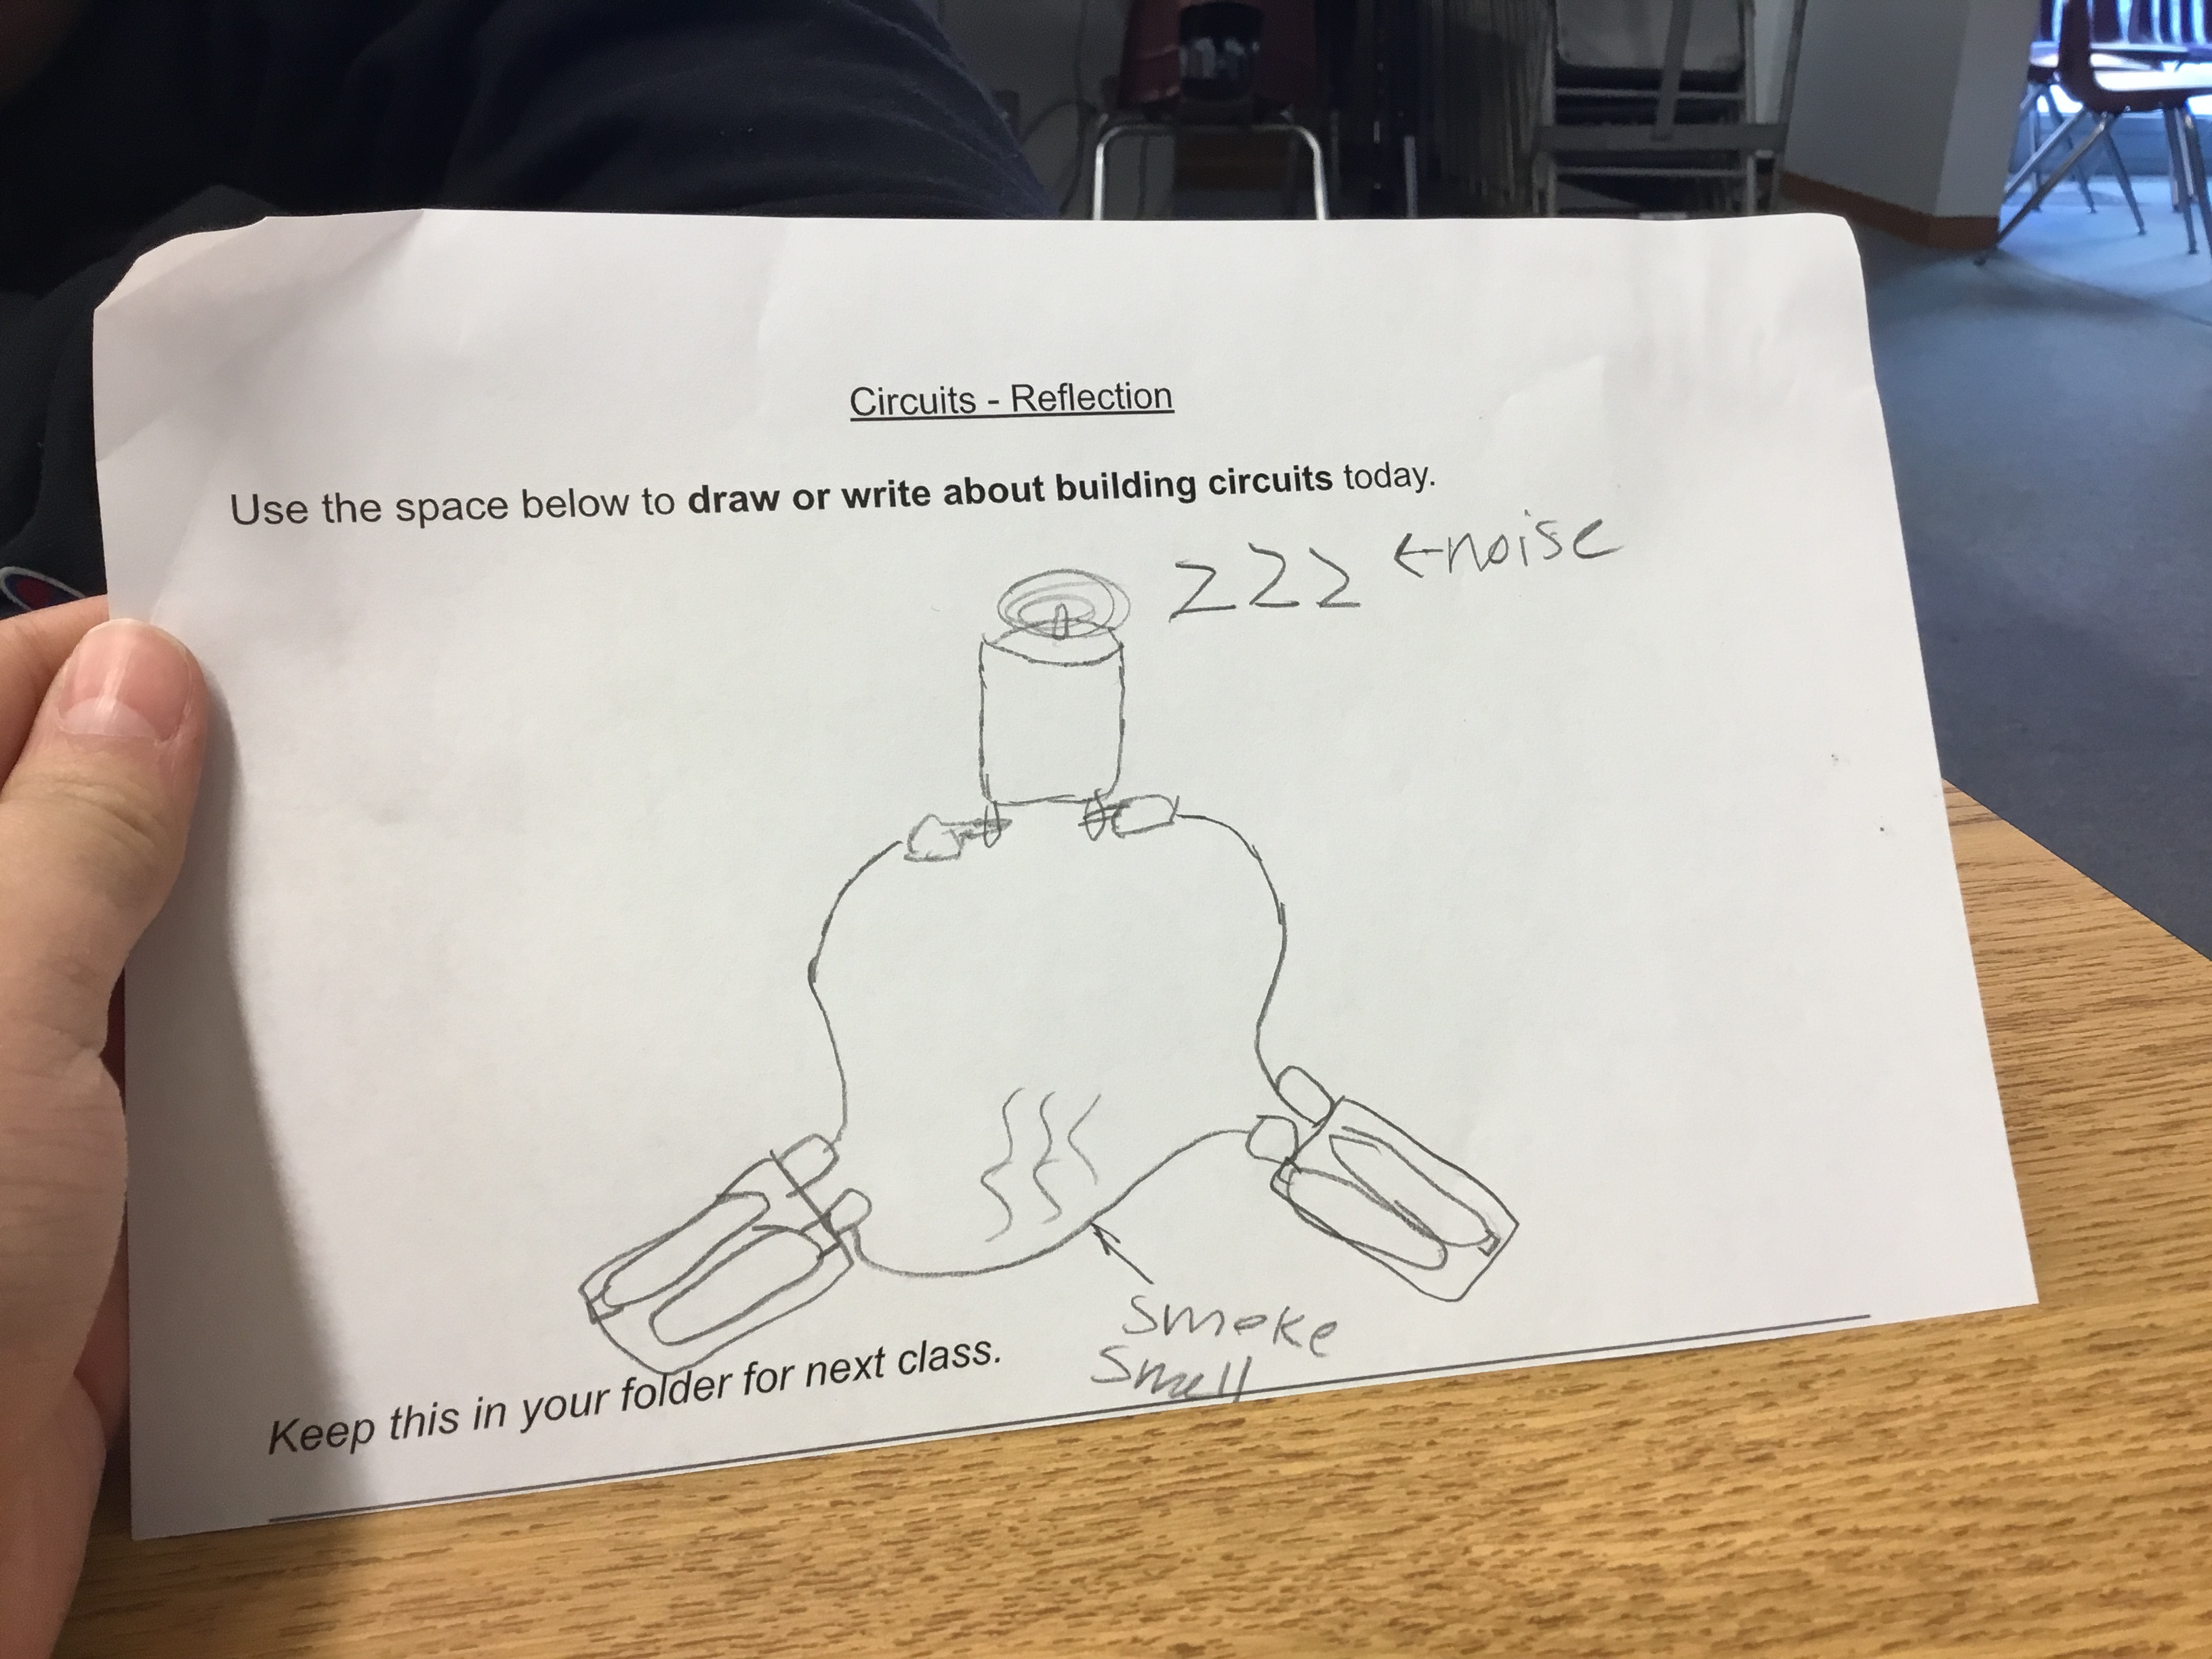 Circuits - Reflection
Use the space below to draw or write about building circuits today.
ZZZ ←noise
smoke
smell
Keep this in your folder for next class.